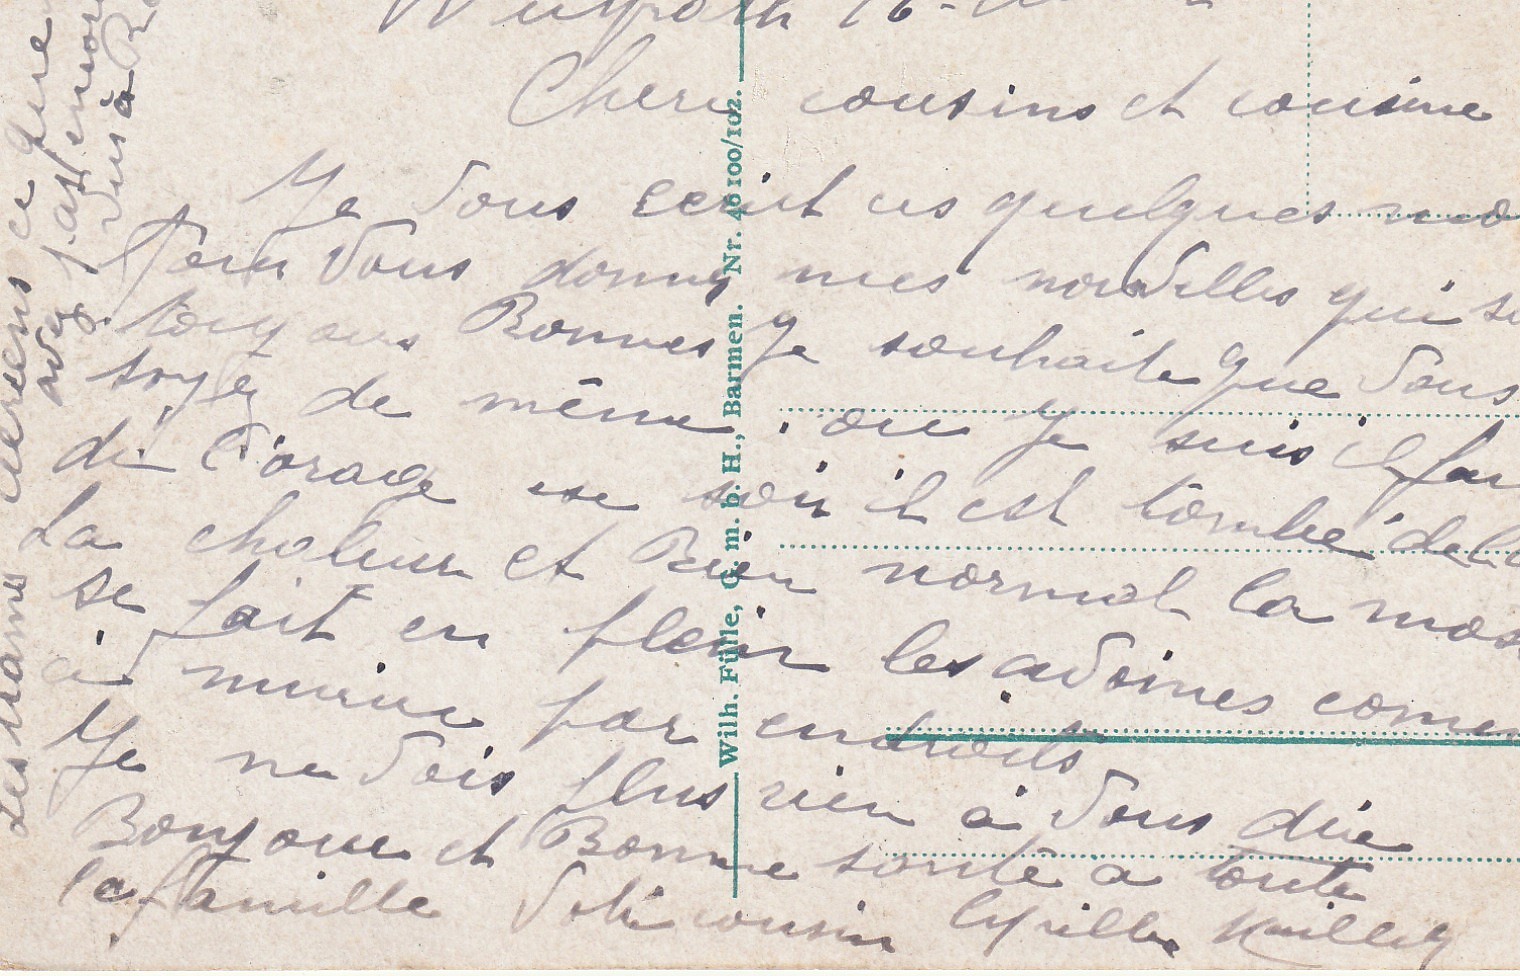 Chers cousins et cousine
Je vous ecrit ces quelques mo
pour vous donnez mes nouvelles qui so
toujours Bonnes Je souhaite que vous
soyez de même. ou je suis il fai
de l'orage ce soir il est tombé de la
La chaleur et Bien normal la mois
se fait en plein les avoines comen
à murir par endroits
Je ne vois plus rien à vous dire
Bonjour et Bonne santé a toute
la famille votre cousin Cyrille
ce que
pas encore
vus à
Wilh. Fülle, G. m. b. H., Barmen. Nr. 46100/102.